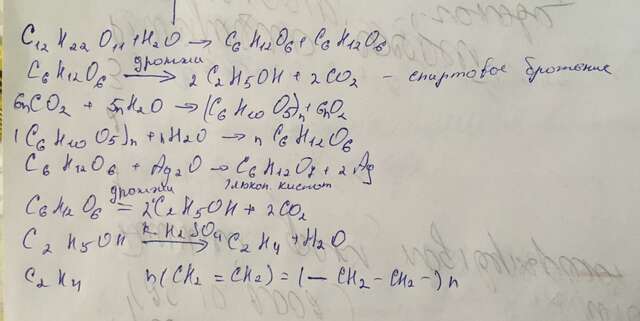 C12 H22 O11 + H2O → C6 H12 O6 + C6 H12 O6
C6 H12 O6 дрожжи → 2 C2 H5 OH + 2 CO2 – спиртовое брожение
6nCO2 + 5nH2O → (C6 H10 O5)n + 6nO2
(C6 H10 O5)n + nH2O → n C6 H12 O6
C6 H12 O6 + Ag2O → C6 H12 O7 + 2 Ag
глюкон. кислот
дрожжи
C6 H12 O6 = 2 C2 H5 OH + 2 CO2
C2 H5 OH к. H2 SO4 → C2 H4 + H2O
C2 H4 n(CH2 = CH2) = (– CH2 – CH2 –)n